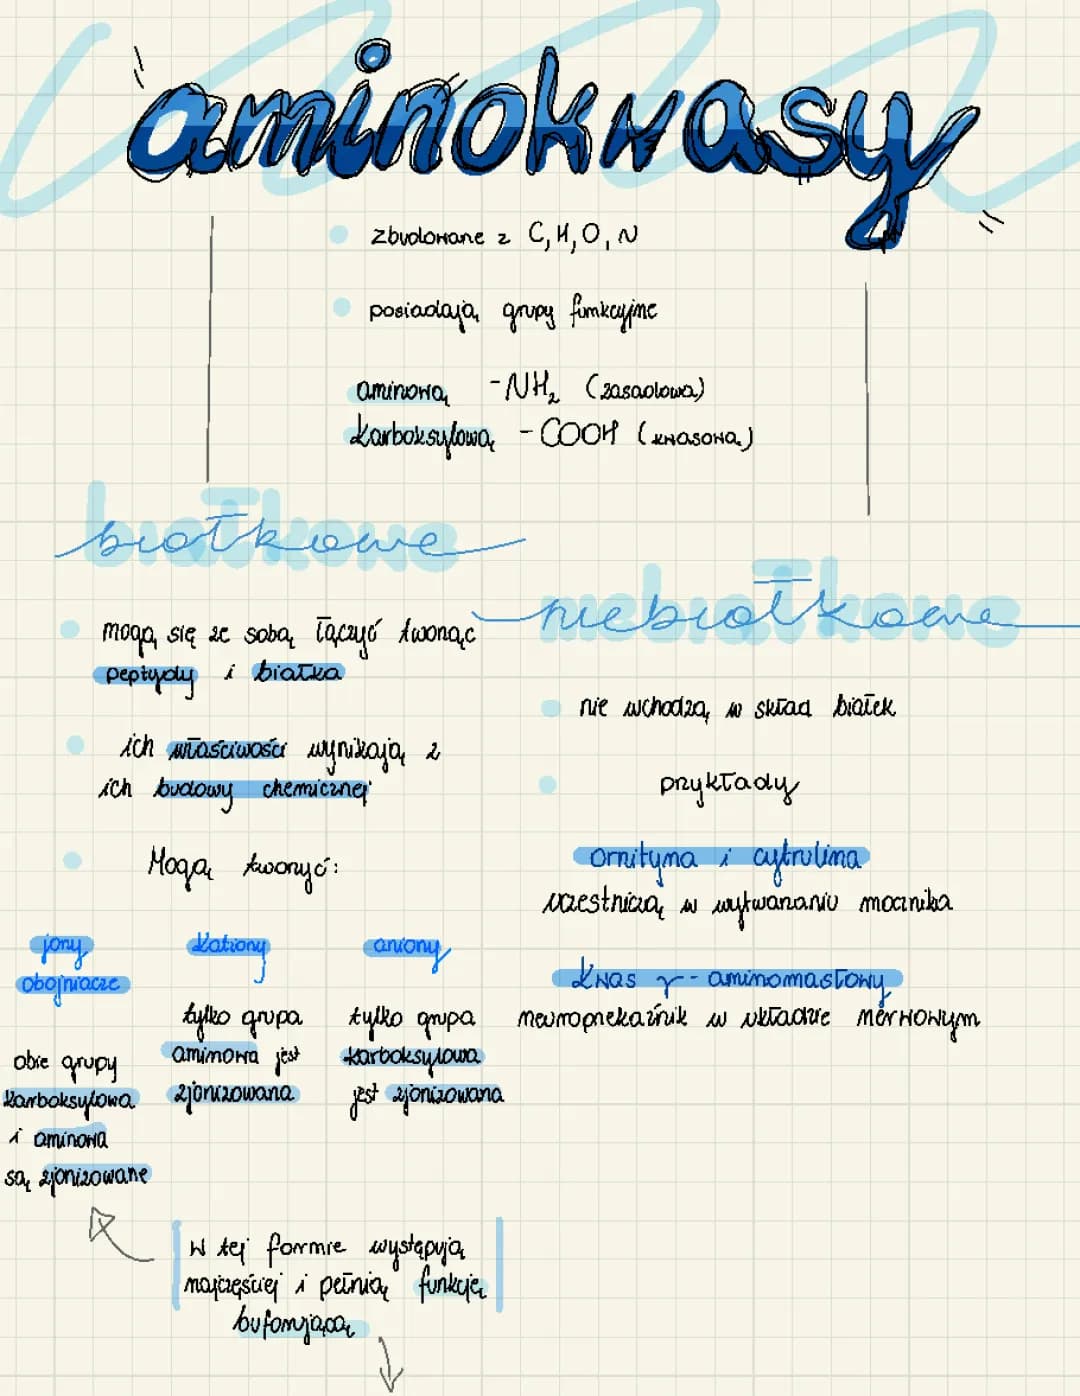 aminokwasy
zbudowane z C, H, O, N
posiadają grupy funkcyjne
aminową -NH₂ (zasadowa)
karboksylową -COOH (kwasowa)
białkowe
mogą się ze sobą łączyć tworząc
peptydy i białka
ich właściwości wynikają z
ich budowy chemicznej
Mogą tworzyć:
jony
obojniacze
obie grupy
karboksylowa
i aminowa
są zjonizowane
kationy
tylko grupa
aminowa jest
zjonizowana
aniony
tylko grupa
karboksylowa
jest zjonizowana
W tej formie występują
najczęściej i pełnią funkcję
buforującą
niebiałkowe
nie wchodzą w skład białek
przykłady
ornityna i cytrulina
uczestniczą w wytwarzaniu mocznika
kwas γ-aminomasłowy
neuroprzekaźnik w układzie nerwowym